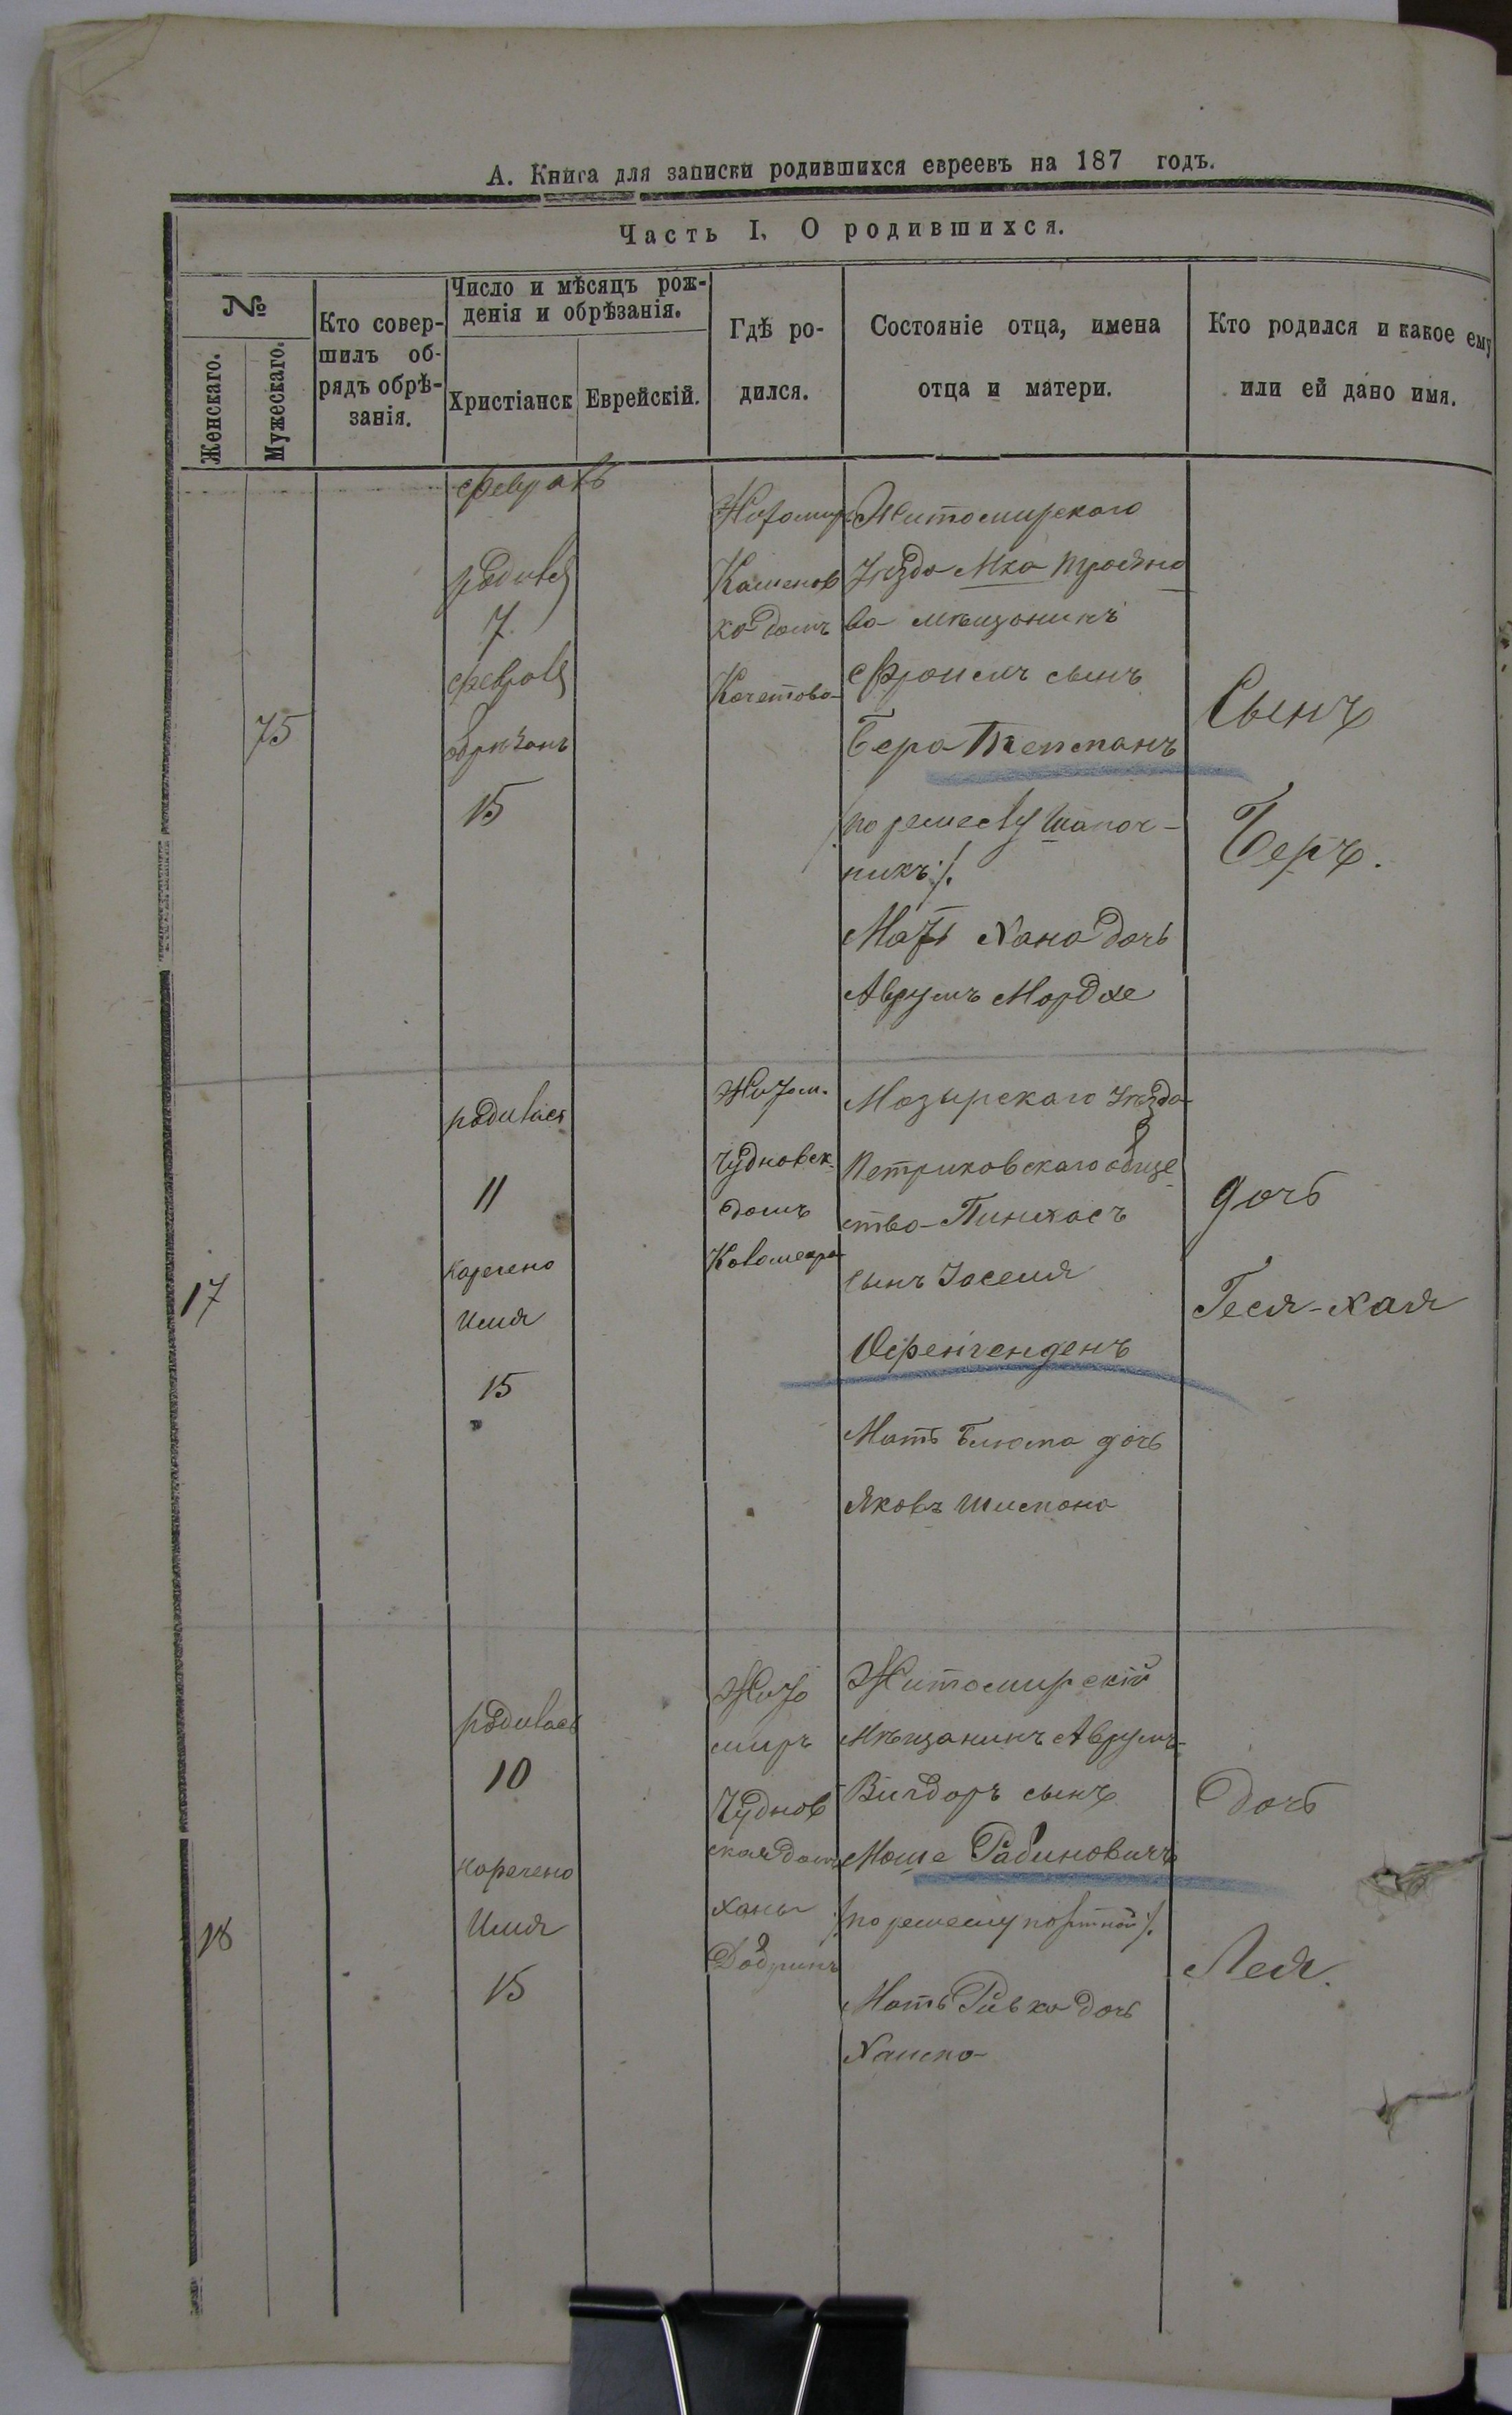 А. Книга для записки родившихся евреевъ на 187 годъ.
Часть I. О родившихся.
№
Женскаго.
Мужескаго.
Кто совер-
шилъ об-
рядъ обрѣ-
занія.
Число и мѣсяцъ рож-
денія и обрѣзанія.
Христіанск
Еврейскій.
Гдѣ ро-
дился.
Состояніе отца, имена
отца и матери.
Кто родился и какое ему
или ей дано имя.
75
февраль
родился
7
февраля
обрѣзанъ
15
Житомир
Каменов
ка домъ
Кочетова
Житомирскаго
Уѣзда Мка Трояно
ва мѣщанинъ
Фроимъ сынъ
Бера
(по ремеслу шапоч-
никъ).
Мать Хана дочь
Аврумъ Мордхе
Сынъ
Беръ.
17
родилась
11
наречено
имя
15
Житом.
Чудновск.
домъ
Мозырскаго Уѣзда
Петриковскаго обще
ства Пинхасъ
сынъ Иоселя
Мать Блюма дочь
Яковъ Шимона
дочь
Геся-Хая
18
родилась
10
наречено
имя
15
Жито
миръ
Чуднов
ская домъ
ханы
Житомирскій
Мѣщанинъ Аврумъ-
Вигдоръ сынъ
Моше Рабиновичъ
(по ремеслу портной).
Мать Ривка дочь
Хаима
Дочь
Лея.